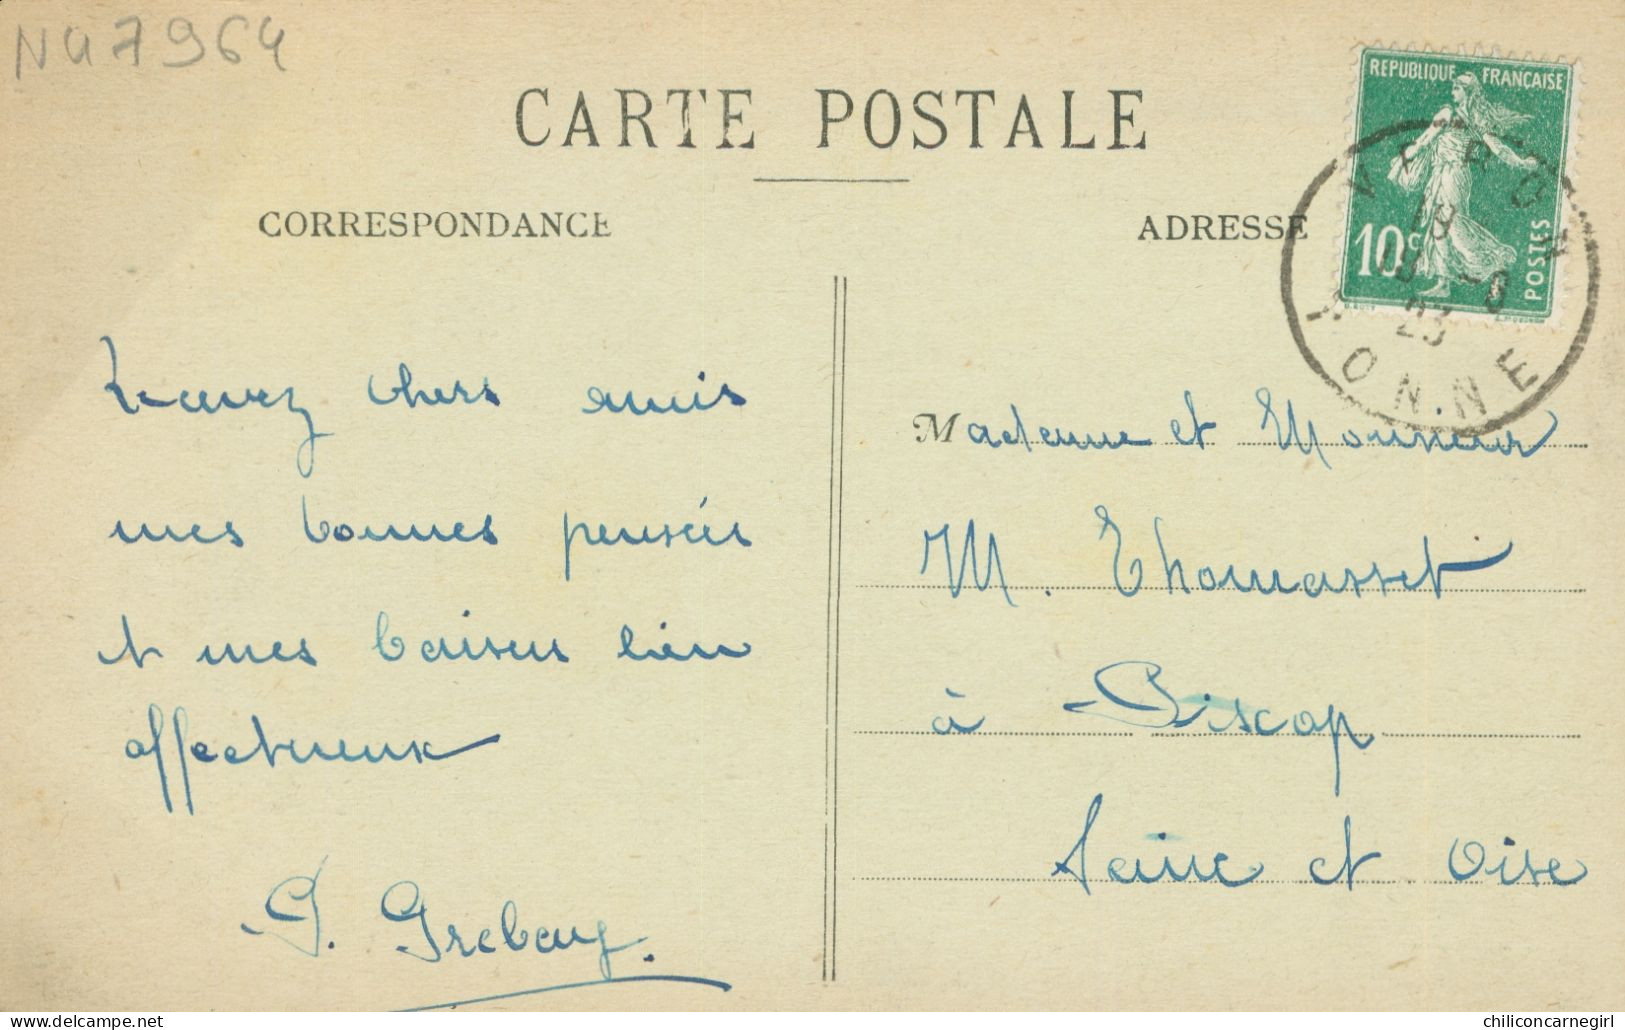 NU7964
CARTE POSTALE
CORRESPONDANCE
ADRESSE
REPUBLIQUE FRANÇAISE
10c
POSTES
VERON
19
23
YONNE
Recevez chers amis
mes bonnes pensées
et mes baisers bien
affectueux
Madame et Monsieur
M. Thomasset
à Piscop
Seine et Oise
delcampe.net
chiliconcarnegirl